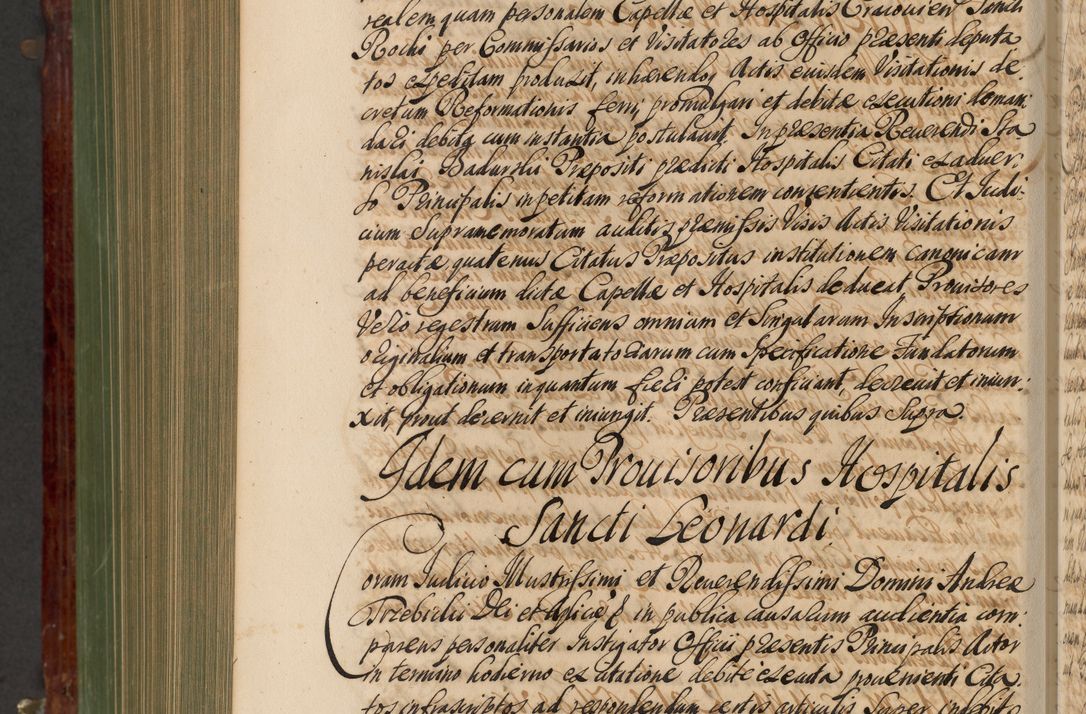 realem quam personalem Capellæ et Hospitalis Cracouien Sancti
Rochi per Commissarios et Visitatores ab Officio præsenti deputa
tos expeditam produxit, inhærendoq Actis eiusdem Visitationis de
cretum Reformationis ferri, promulgari et debitæ executioni deman:
dari debita cum instantia postulauit. In præsentia Reuerendi Sta
nislai Badurski Præpositi prædicti Hospitalis Citati ex aduer:
so Principalis in petitam reformationem consentientis. Et Iudi:
cium Supramemoratum auditis præmissis Visis Actis Visitationis
peractæ quatenus Citatus Præpositus institutionem canonicam
ad beneficium dictæ Capellæ et Hospitalis deducat, Prouisores
Vero regestrum Sufficiens omnium et Singularum Inscriptionum
originalium et transportatorarum cum Specificatione Fundatorum
et obligationum inquantum fieri potest conficiant, decreuit et iniun:
xit, prout decernit et iniungit. Præsentibus quibus Supra.
Idem cum Prouisoribus Hospitalis
Sancti Leonardi.
Coram Iudicio Illustrissimi et Reuerendissimi Domini Andreæ
Trzebicki Dei et Aplicæ & in publica causarum audientia com:
parens personaliter Instigator Officii præsentis Principalis Actor
in termino hodierno ex citatione debite executa prouenienti Cita
tos infrascriptos ad respondendum certis articulis Super